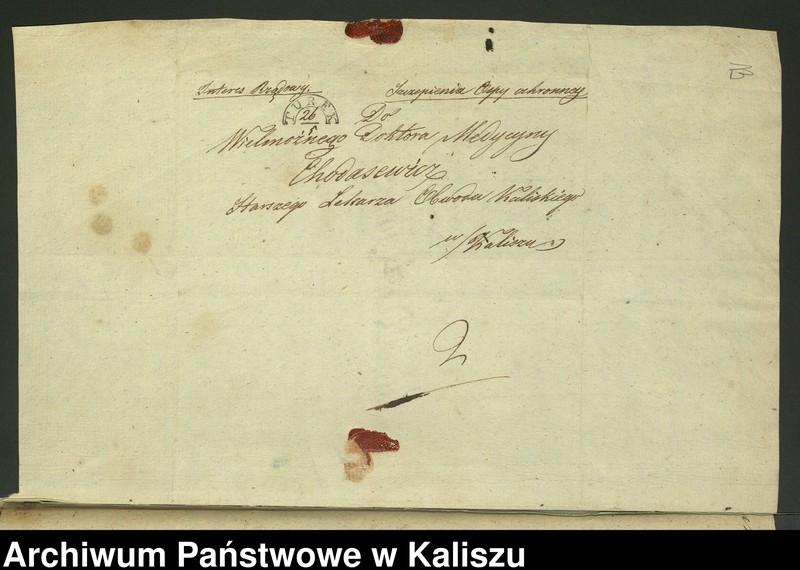 Interes Rządowy. Szczepienia Ospy ochronnej
TUREK
26
Do
Wielmożnego Doktora Medycyny
Chodasewicz
Starszego Lekarza Obwodu Kaliskiego
w Kaliszu
2
Archiwum Państwowe w Kaliszu